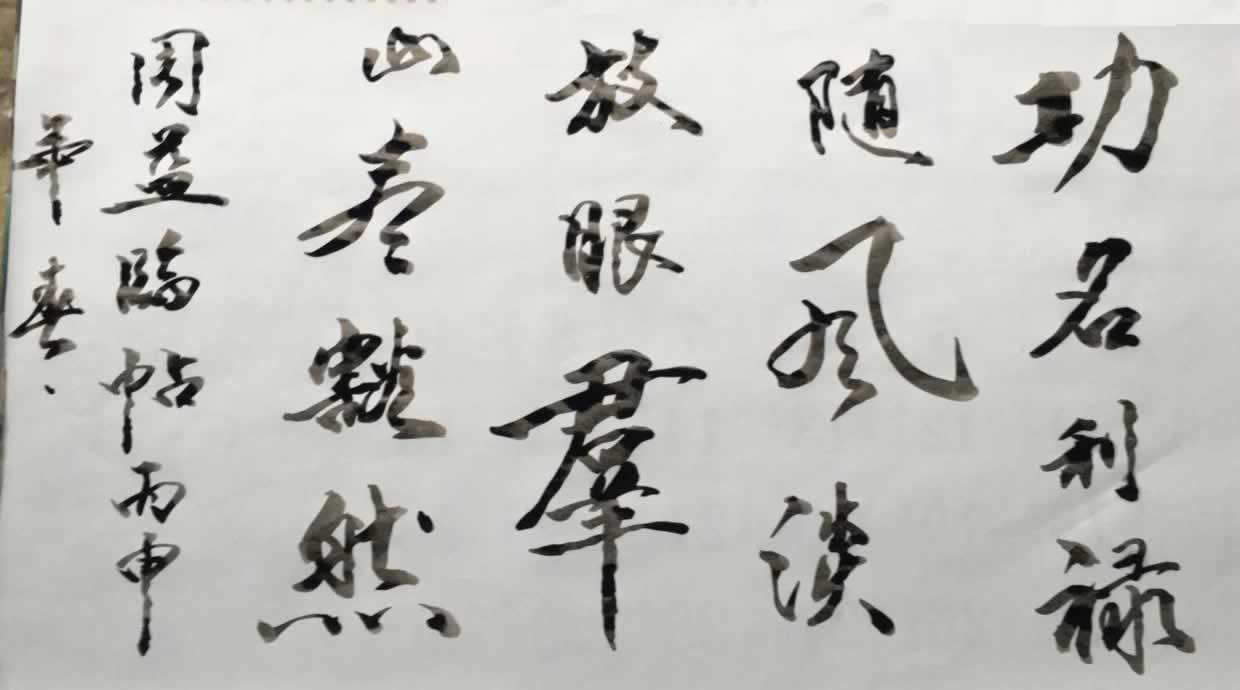 功名利禄
随风淡
放眼羣
山尽豁然
周益临帖丙申
年春